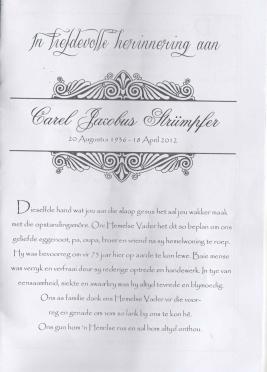 In Liefdevolle herinnering aan
Carel Jacobus Strümpfer
20 Augustus 1936 - 18 April 2012
Dieselfde hand wat jou aan die slaap gesus het sal jou wakker maak
met die opstandingsmôre. Ons Hemelse Vader het dit so beplan om ons
geliefde eggenoot, pa, oupa, broer en vriend na sy hemelwoning te roep.
Hy was bevoorreg om vir 75 jaar hier op aarde te kon lewe. Baie mense
was verryk en verfraai deur sy rederige optrede en handewerk. In tye van
eensaamheid, siekte en swaarkry was hy altyd tevrede en blymoedig.
Ons as familie dank ons Hemelse Vader vir die voor-
reg en genade om vir so lank by ons te kon hê.
Ons gun hom 'n Hemelse rus en sal hom altyd onthou.